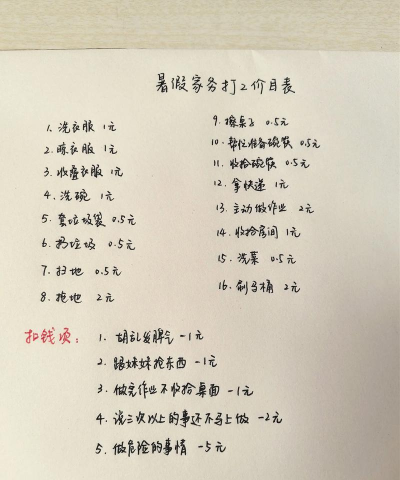 暑假家务打工价目表
1. 洗衣服 1元
2. 晾衣服 1元
3. 收叠衣服 1元
4. 洗碗 1元
5. 套垃圾袋 0.5元
6. 扔垃圾 0.5元
7. 扫地 0.5元
8. 拖地 2元
9. 擦桌子 0.5元
10. 帮忙准备碗筷 0.5元
11. 收拾碗筷 0.5元
12. 拿快递 1元
13. 主动做作业 2元
14. 收拾房间 1元
15. 洗菜 0.5元
16. 刷马桶 2元
扣钱项:
1. 胡乱发脾气 -1元
2. 跟妹妹抢东西 -1元
3. 做完作业不收拾桌面 -1元
4. 说三次以上的事还不马上做 -2元
5. 做危险的事情 -5元